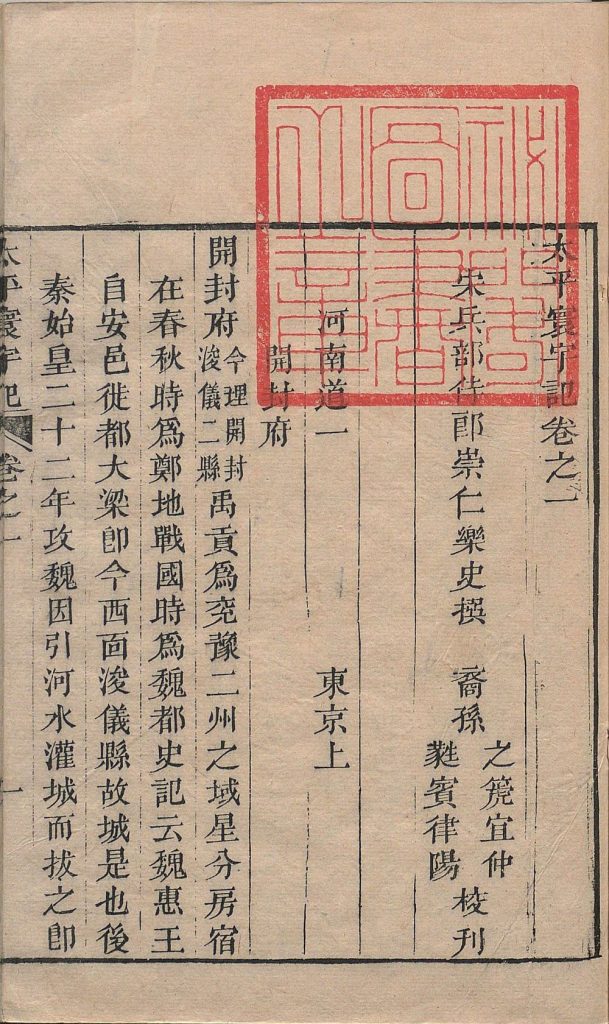 太平寰宇記卷之一
宋兵部侍郎崇仁樂史撰 裔孫 之篪宜仲 蕤賓律陽 校刊
河南道一 東京上
開封府
開封府 今理開封 浚儀二縣 禹貢爲兖豫二州之域星分房宿
在春秋時爲鄭地戰國時爲魏都史記云魏惠王
自安邑徙都大梁卽今西面浚儀縣故城是也後
秦始皇二十二年攻魏因引河水灌城而拔之卽
太平寰宇記 卷之一 一